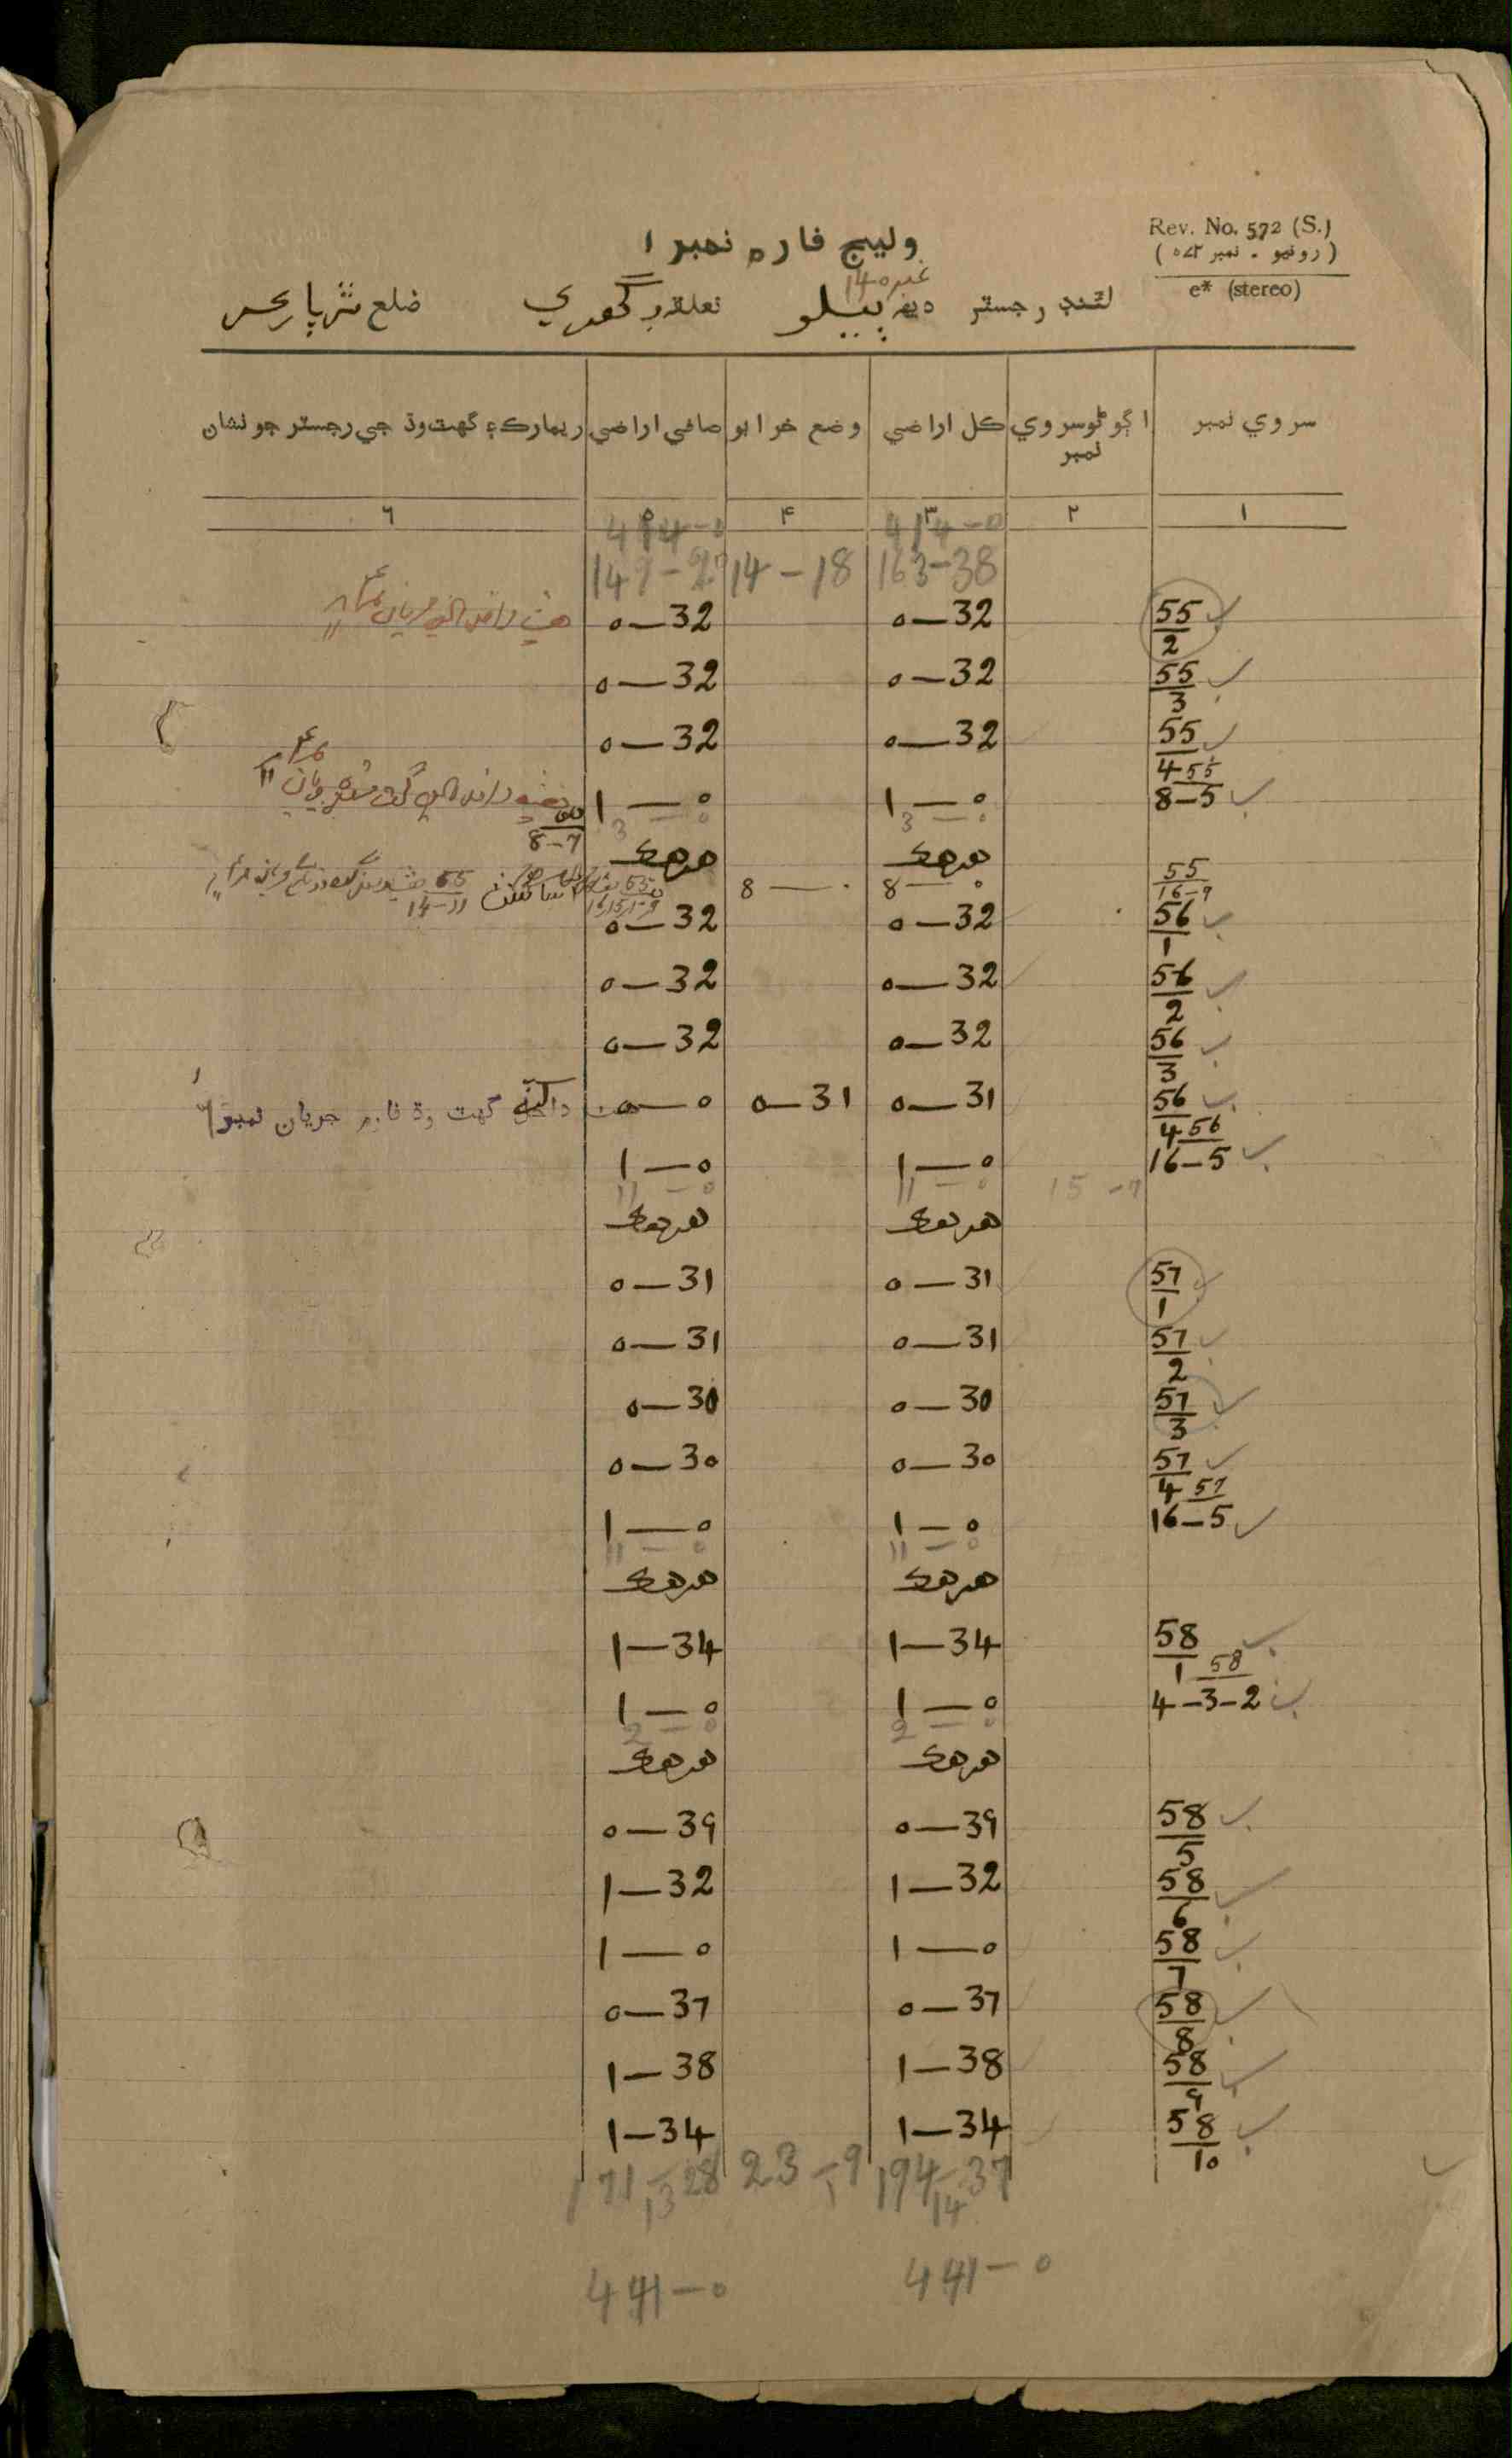 Rev. No. 572 (S.)
(روينيو . نمبر ٥٧٢)
e* (stereo)
وليج فارم نمبر ١
لئنڊ رجسٽر ديهه پيلو نمبر 140 تعلقه ڊگهڙي ضلع ٿرپارڪر
سروي نمبر | اڳوڻو سروي نمبر | ڪل اراضي | وضع خرابو | صافي اراضي | ريمارڪ ۽ گهٽ وڌ جي رجسٽر جو نشان
١ | ٢ | ٣ | ۴ | ٥ | ٦
414-0 | 414-0
163-38 | 14-18 | 149-20
55/2 | 0-32 | 0-32
55/3 | 0-32 | 0-32
55/4 | 0-32 | 0-32
55/8-5 | 1-0 | 1-0
3-0 | 3
هرهڪ | هرهڪ | 8-7
55/16-9 | 8-0 | 8-0 | 55 | 55/14-11
56/1 | 0-32 | 0-32
56/2 | 0-32 | 0-32
56/3 | 0-32 | 0-32
56/4 | 0-31 | 0-31 | 0-0 | داخل گهٽ وڌ فارم جريان نمبر ٦
56/16-5 | 1-0 | 1-0
15-7 | 11-0 | 11-0
هرهڪ | هرهڪ
57/1 | 0-31 | 0-31
57/2 | 0-31 | 0-31
57/3 | 0-30 | 0-30
57/4 | 0-30 | 0-30
57/16-5 | 1-0 | 1-0
11-0 | 11-0
هرهڪ | هرهڪ
58/1 | 1-34 | 1-34
58/4-3-2 | 1-0 | 1-0
2-0 | 2-0
هرهڪ | هرهڪ
58/5 | 0-39 | 0-39
58/6 | 1-32 | 1-32
58/7 | 1-0 | 1-0
58/8 | 0-37 | 0-37
58/9 | 1-38 | 1-38
58/10 | 1-34 | 1-34
194-37 | 23-9 | 171-28
14 | 1 | 13
441-0 | 441-0